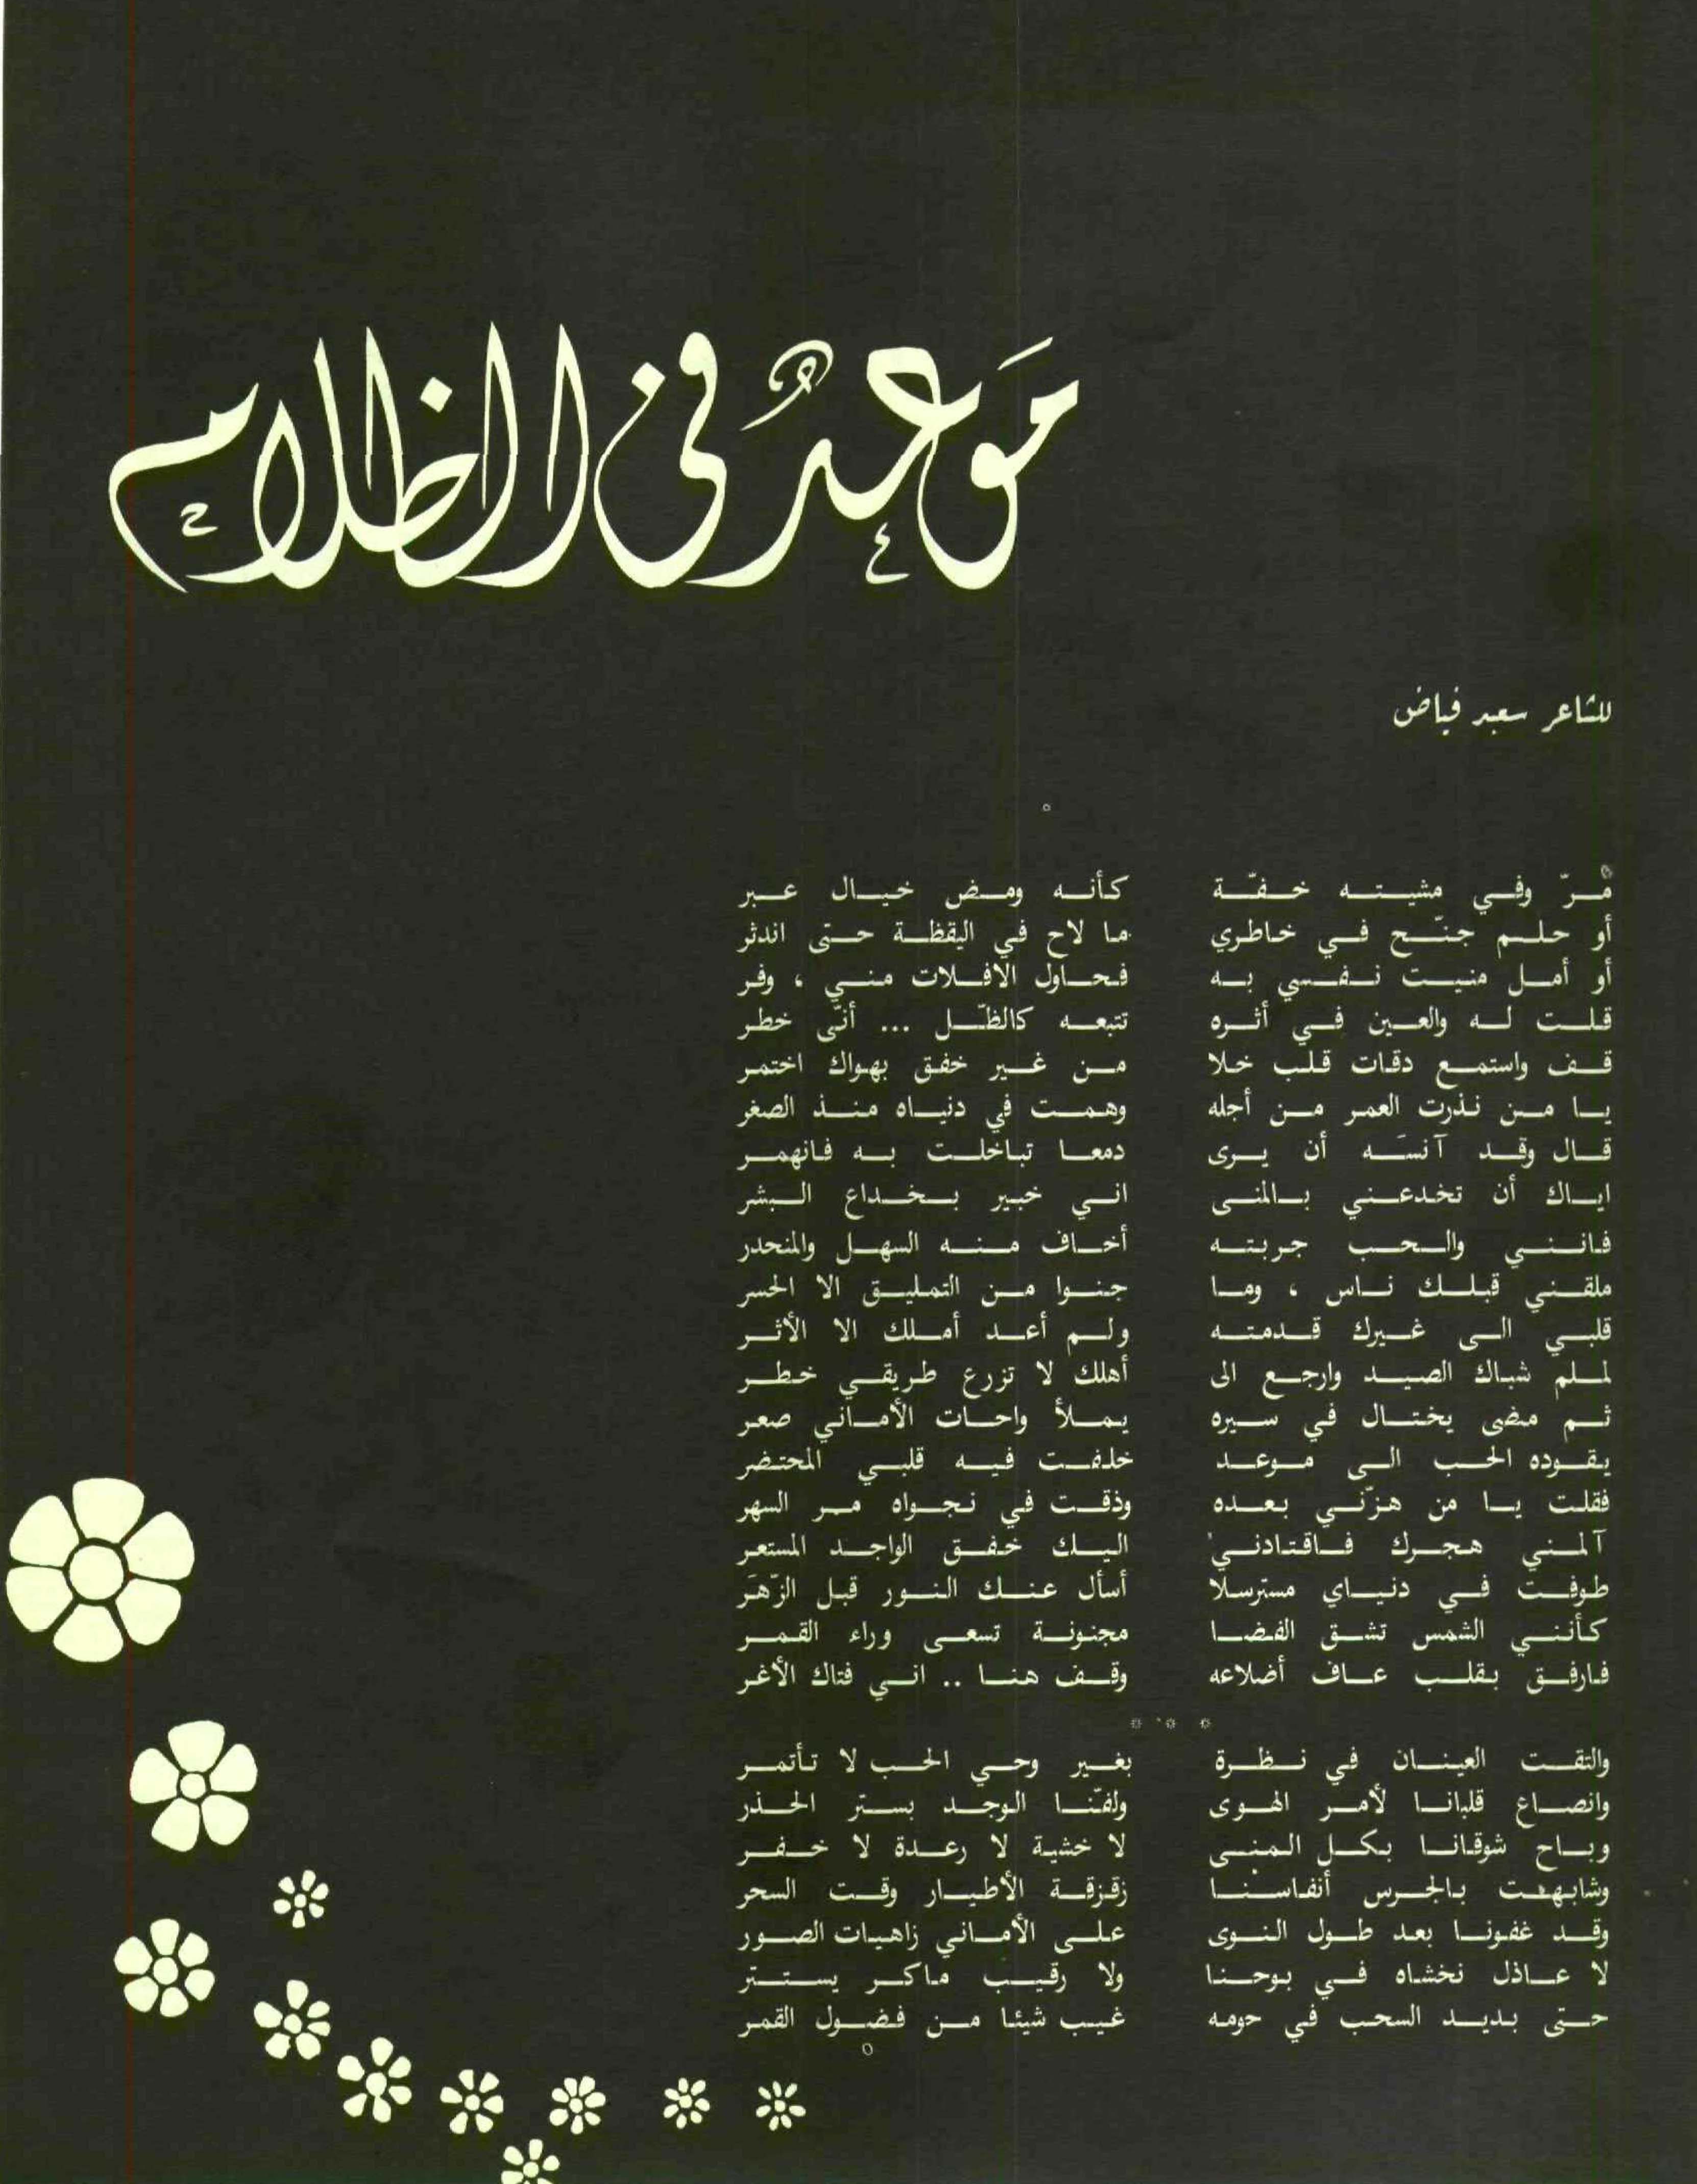 موعد في الظلام
للشاعر سعيد فياض
مرّ وفي مشيته خفّة كأنه ومض خيال عبر
أو حلم جنّح في خاطري ما لاح في اليقظة حتى اندثر
أو أمل منيت نفسي به فحاول الافلات مني ، وفر
قلت له والعين في أثره تتبعه كالظّل ... أنّى خطر
قف واستمع دقات قلب خلا من غير خفق بهواك اختمر
يا من نذرت العمر من أجله وهمت في دنياه منذ الصغر
قال وقد آنسَه أن يرى دمعا تباخلت به فانهمر
اياك أن تخدعني بالمنى اني خبير بخداع البشر
فانني والحب جربته أخاف منه السهل والمنحدر
ملقني قبلك ناس ، وما جنوا من التمليق الا الحسر
قلبي الى غيرك قدمته ولم أعد أملك الا الأثر
لملم شباك الصيد وارجع الى أهلك لا تزرع طريقي خطر
ثم مضى يختال في سيره يملأ واحات الأماني صعر
يقوده الحب الى موعد خلفت فيه قلبي المحتضر
فقلت يا من هزّني بعده وذقت في نجواه مر السهر
آلمني هجرك فاقتادني اليك خفق الواجد المستعر
طوفت في دنياي مسترسلا أسأل عنك النور قبل الزّهَر
كأنني الشمس تشق الفضا مجنونة تسعى وراء القمر
فارفق بقلب عاف أضلاعه وقف هنا .. اني فتاك الأغر
والتقت العينان في نظرة بغير وحي الحب لا تأتمر
وانصاع قلبانا لأمر الهوى ولفّنا الوجد بستر الحذر
وباح شوقانا بكل المنى لا خشية لا رعدة لا خفر
وشابهت بالجرس أنفاسنا زقزقة الأطيار وقت السحر
وقد غفونا بعد طول النوى على الأماني زاهيات الصور
لا عاذل نخشاه في بوحنا ولا رقيب ماكر يستتر
حتى بديد السحب في حومه غيب شيئا من فضول القمر